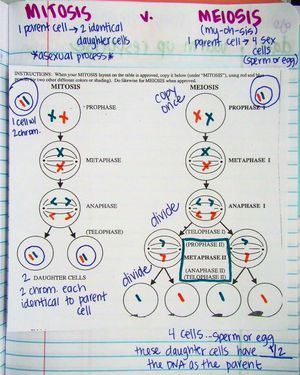 MITOSIS v. MEIOSIS
1 parent cell → 2 identical daughter cells
*asexual process*
(my-oh-sis)
1 parent cell → 4 sex cells
(sperm or egg)
INSTRUCTIONS: When your MITOSIS layout on the table is approved, copy it below (under "MITOSIS"), using red and
two other different colors or shading). Do likewise for MEIOSIS when approved.
MITOSIS
MEIOSIS
1 cell w/
2 chrom.
copy once
PROPHASE
PROPHASE I
METAPHASE
METAPHASE I
divide
ANAPHASE
ANAPHASE I
(TELOPHASE)
(TELOPHASE I)
(PROPHASE II)
METAPHASE II
(ANAPHASE II)
(TELOPHASE II)
divide
2
DAUGHTER CELLS
2 chrom. each
identical to parent
cell
4 cells...sperm or egg
these daughter cells have 1/2
the DNA as the parent